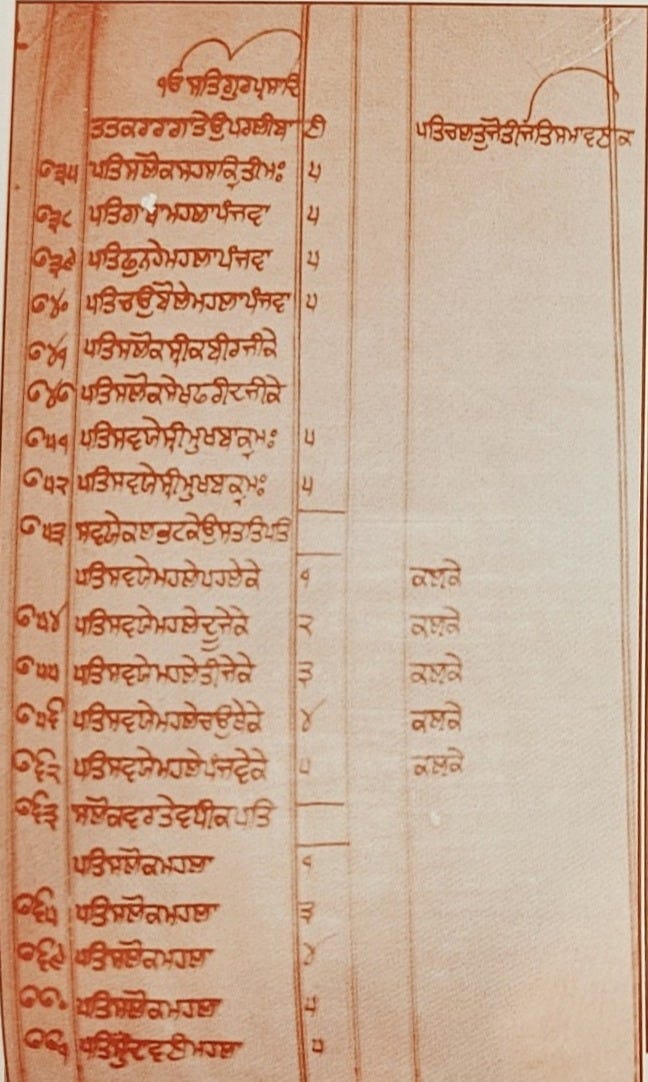 ੧ਓ ਸਤਿਗੁਰਪ੍ਰਸਾਦਿ
ਤਤਕਰਰਗਤੇਉਪਰਲੀਬਾ ਣੀ ਪਤਿਚਲਤੁਜੋਤੀਜੋਤਿਸਮਾਵਣਕ
੭੩੫ ਪਤਿਸਲੋਕਸਹਸਕ੍ਰਿਤੀਮਃ ੫
੭੩੮ ਪਤਿਗਾਥਾਮਹਲਾਪੰਜਵਾ ੫
੭੩੯ ਪਤਿਫੁਨਹੇਮਹਲਾਪੰਜਵਾ ੫
੭੪੦ ਪਤਿਚਉਬੋਲੇਮਹਲਾਪੰਜਵਾ ੫
੭੪੧ ਪਤਿਸਲੋਕਸ੍ਰੀਕਬੀਰਜੀਕੇ
੭੪੭ ਪਤਿਸਲੋਕਸੇਖਫਰੀਦਜੀਕੇ
੭੫੧ ਪਤਿਸਵਯੇਸ੍ਰੀਮੁਖਬਾਕ੍ਯਮਃ ੫
੭੫੨ ਪਤਿਸਵਯੇਸ੍ਰੀਮੁਖਬਾਕ੍ਯਮਃ ੫
੭੫੩ ਸਵਯੇਕਲਭਟਕੇਉਸਤਤਿਪਤਿ
ਪਤਿਸਵਯੇਮਹਲੇਪਹਲੇਕੇ ੧ ਕਲਕੇ
੭੫੪ ਪਤਿਸਵਯੇਮਹਲੇਦੂਜੇਕੇ ੨ ਕਲਕੇ
੭੫੫ ਪਤਿਸਵਯੇਮਹਲੇਤੀਜੇਕੇ ੩ ਕਲਕੇ
੭੫੬ ਪਤਿਸਵਯੇਮਹਲੇਚਉਥੇਕੇ ੪ ਕਲਕੇ
੭੬੨ ਪਤਿਸਵਯੇਮਹਲੇਪੰਜਵੇਕੇ ੫ ਕਲਕੇ
੭੬੩ ਸਲੋਕਵਰਤੇਵਧੀਕਪਤਿ
ਪਤਿਸਲੋਕਮਹਲਾ ੧
੭੬੫ ਪਤਿਸਲੋਕਮਹਲਾ ੩
੭੬੯ ਪਤਿਸਲੋਕਮਹਲਾ ੪
੭੭੦ ਪਤਿਸਲੋਕਮਹਲਾ ੫
ਪਤਿਮੁੰਦਾਵਣੀਮਹਲਾ ੫